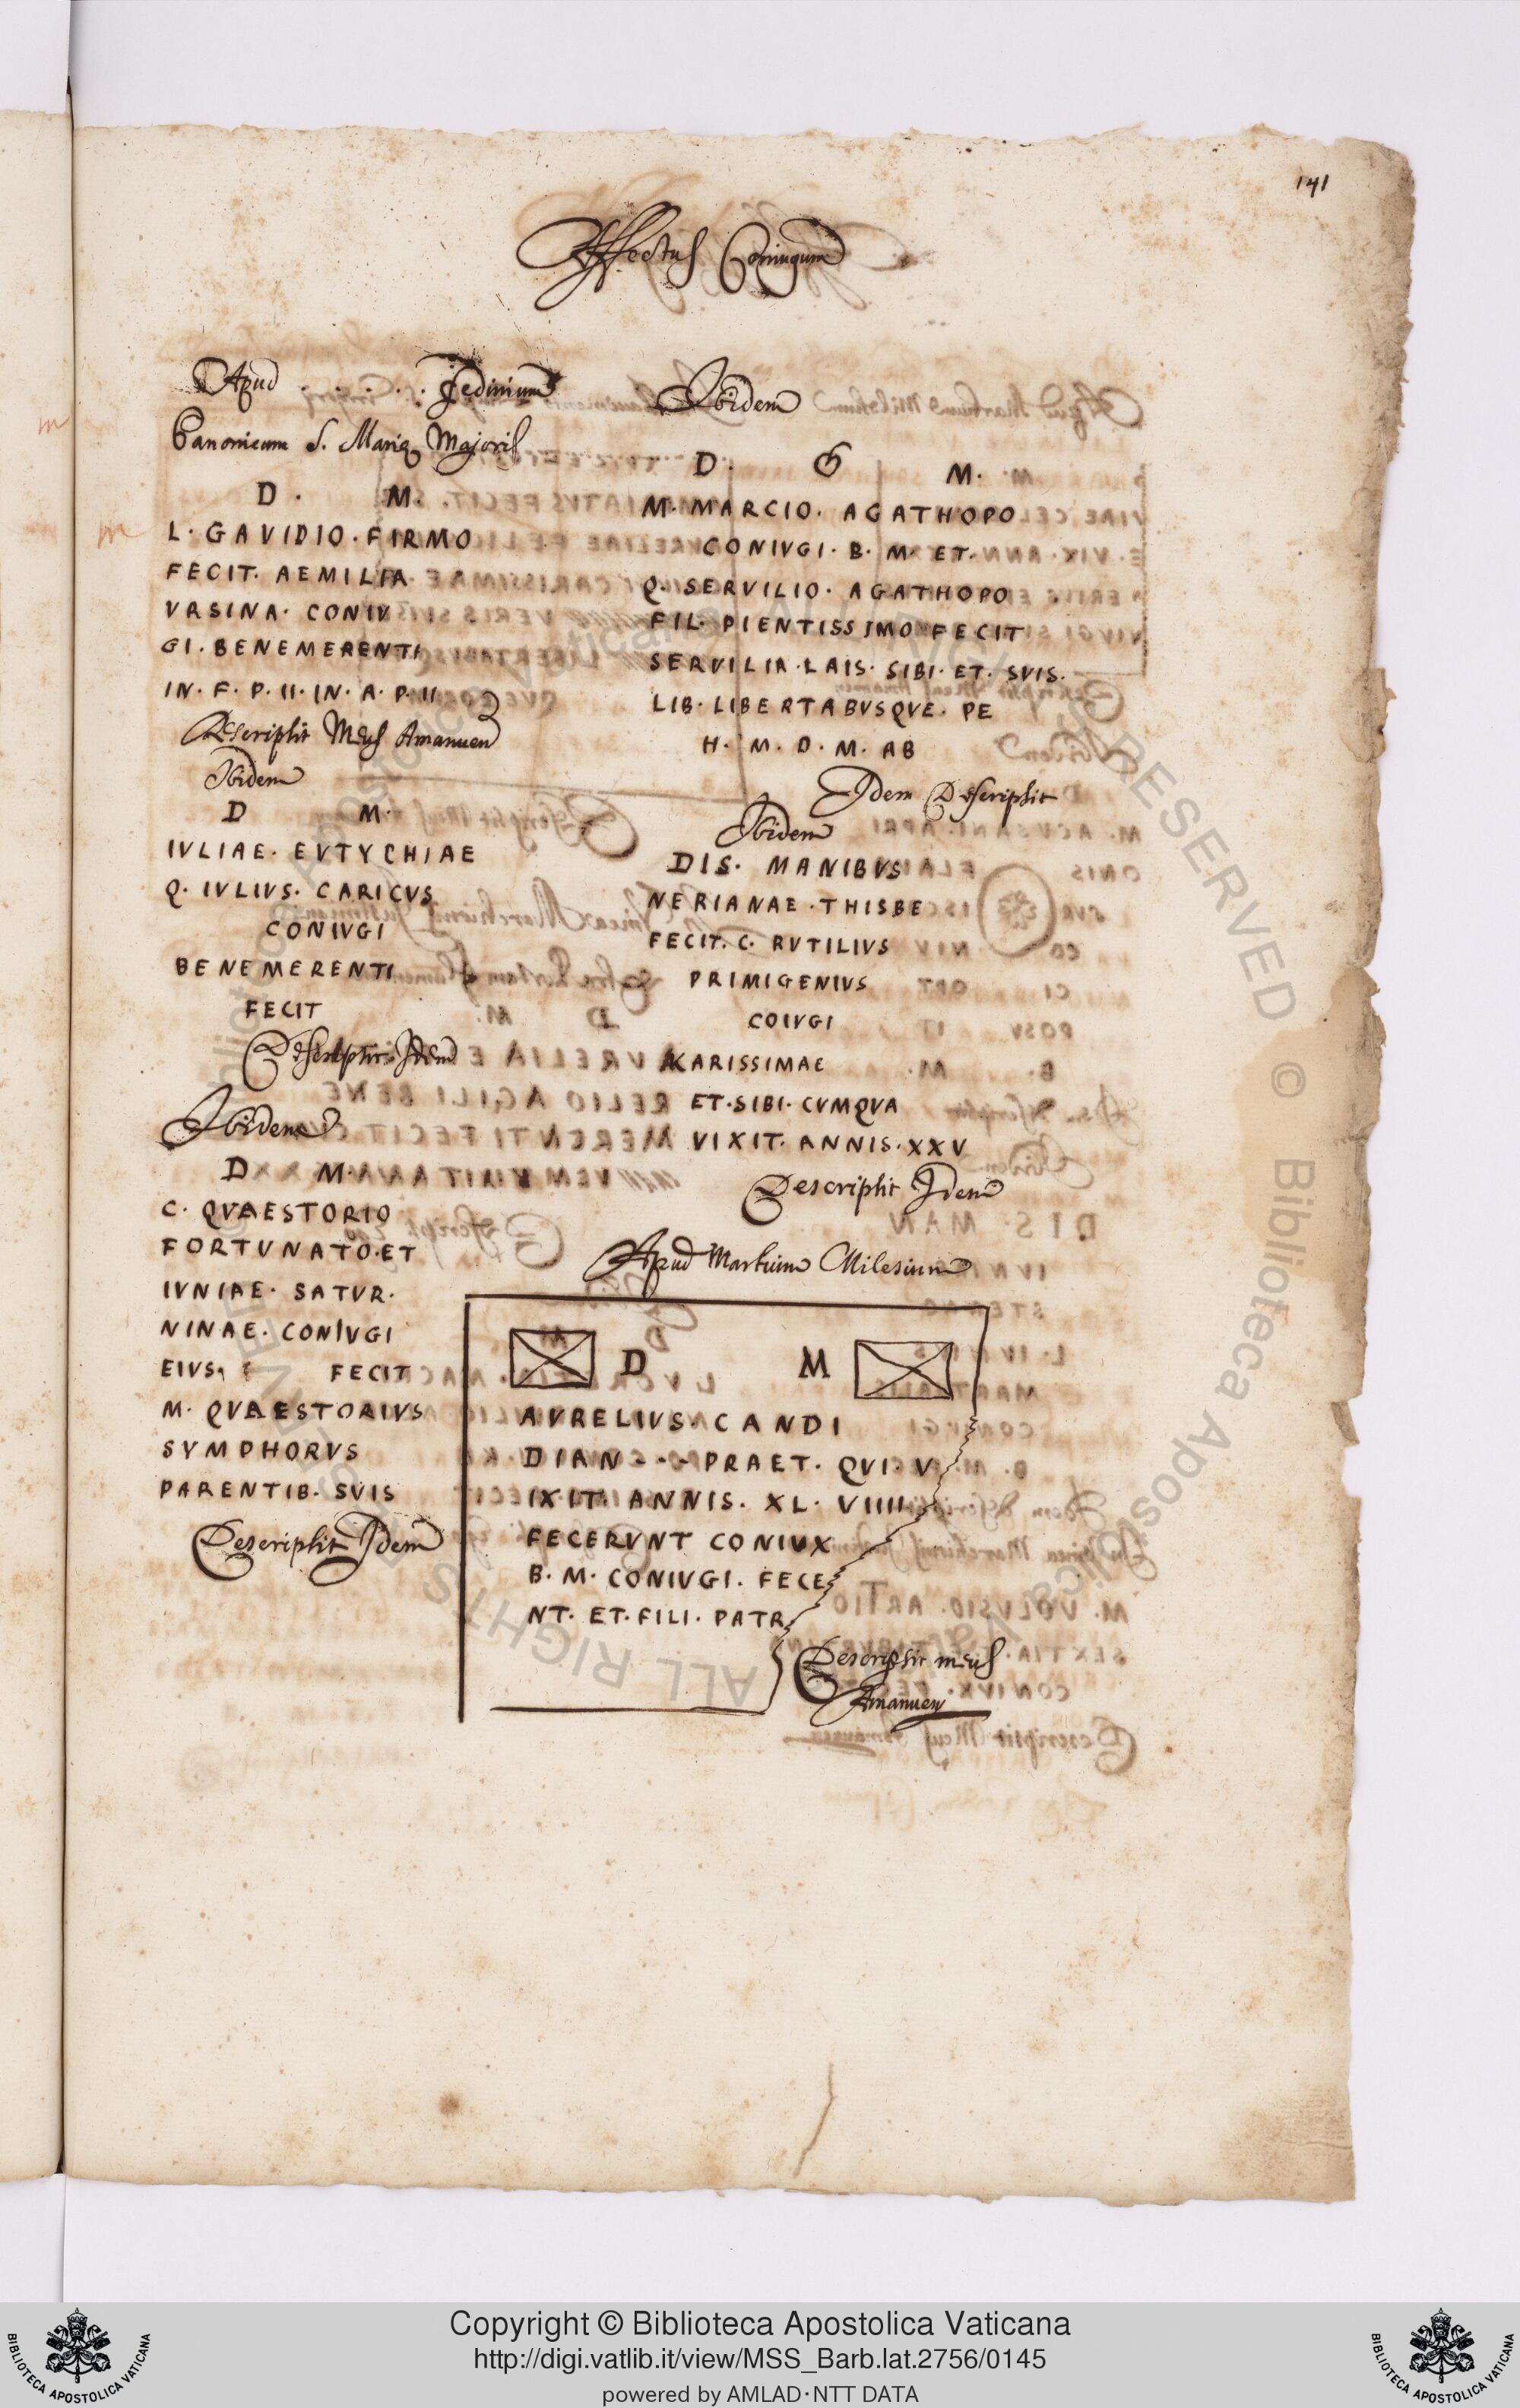 141
Affectus Coniugum
Apud . . . . . Fedinium
Canonicum S. Marię Majoris
D. M.
L. GAVIDIO. FIRMO
FECIT. AEMILIA
VRSINA. CONIV
GI. BENEMERENTI
IN. F. P. II. IN. A. P. II
Descriplit Meus Amanuen
Ibidem
D M.
IVLIAE. EVTYCHIAE
Q. IVLIVS. CARICVS
CONIVGI
BENEMERENTI
FECIT
Descriplit Idem
Ibidem
D M.
C. QVAESTORIO
FORTVNATO. ET
IVNIAE. SATVR.
NINAE. CONIVGI
EIVS. FECIT
M. QVAESTORIVS
SYMPHORVS
PARENTIB. SVIS
Descriplit Idem
Ibidem
D. M.
M. MARCIO. AGATHOPO
CONIVGI. B. M. ET.
Q. SERVILIO. AGATHOPO
FIL. PIENTISSIMO FECIT
SERVILIA. LAIS. SIBI. ET. SVIS.
LIB. LIBERTABVSQVE. PE
H. M. D. M. AB
Idem Descriplit
Ibidem
DIS. MANIBVS
NERIANAE. THISBE
FECIT. C. RVTILIVS
PRIMIGENIVS
COIVGI
KARISSIMAE
ET. SIBI. CVMQVA
VIXIT. ANNIS. XXV
Descriplit Idem
Apud Martium Milesium
D M
AVRELIVS. CANDI
DIAN - - PRAET. QVI. V
IXIT. ANNIS. XL. VIIII
FECERVNT CONIVX
B. M. CONIVGI. FECE
NT. ET. FILI. PATR
Descriplit meus
Amanuen
Copyright © Biblioteca Apostolica Vaticana
http://digi.vatlib.it/view/MSS_Barb.lat.2756/0145
powered by AMLAD·NTT DATA
BIBLIOTECA APOSTOLICA VATICANA
BIBLIOTECA APOSTOLICA VATICANA